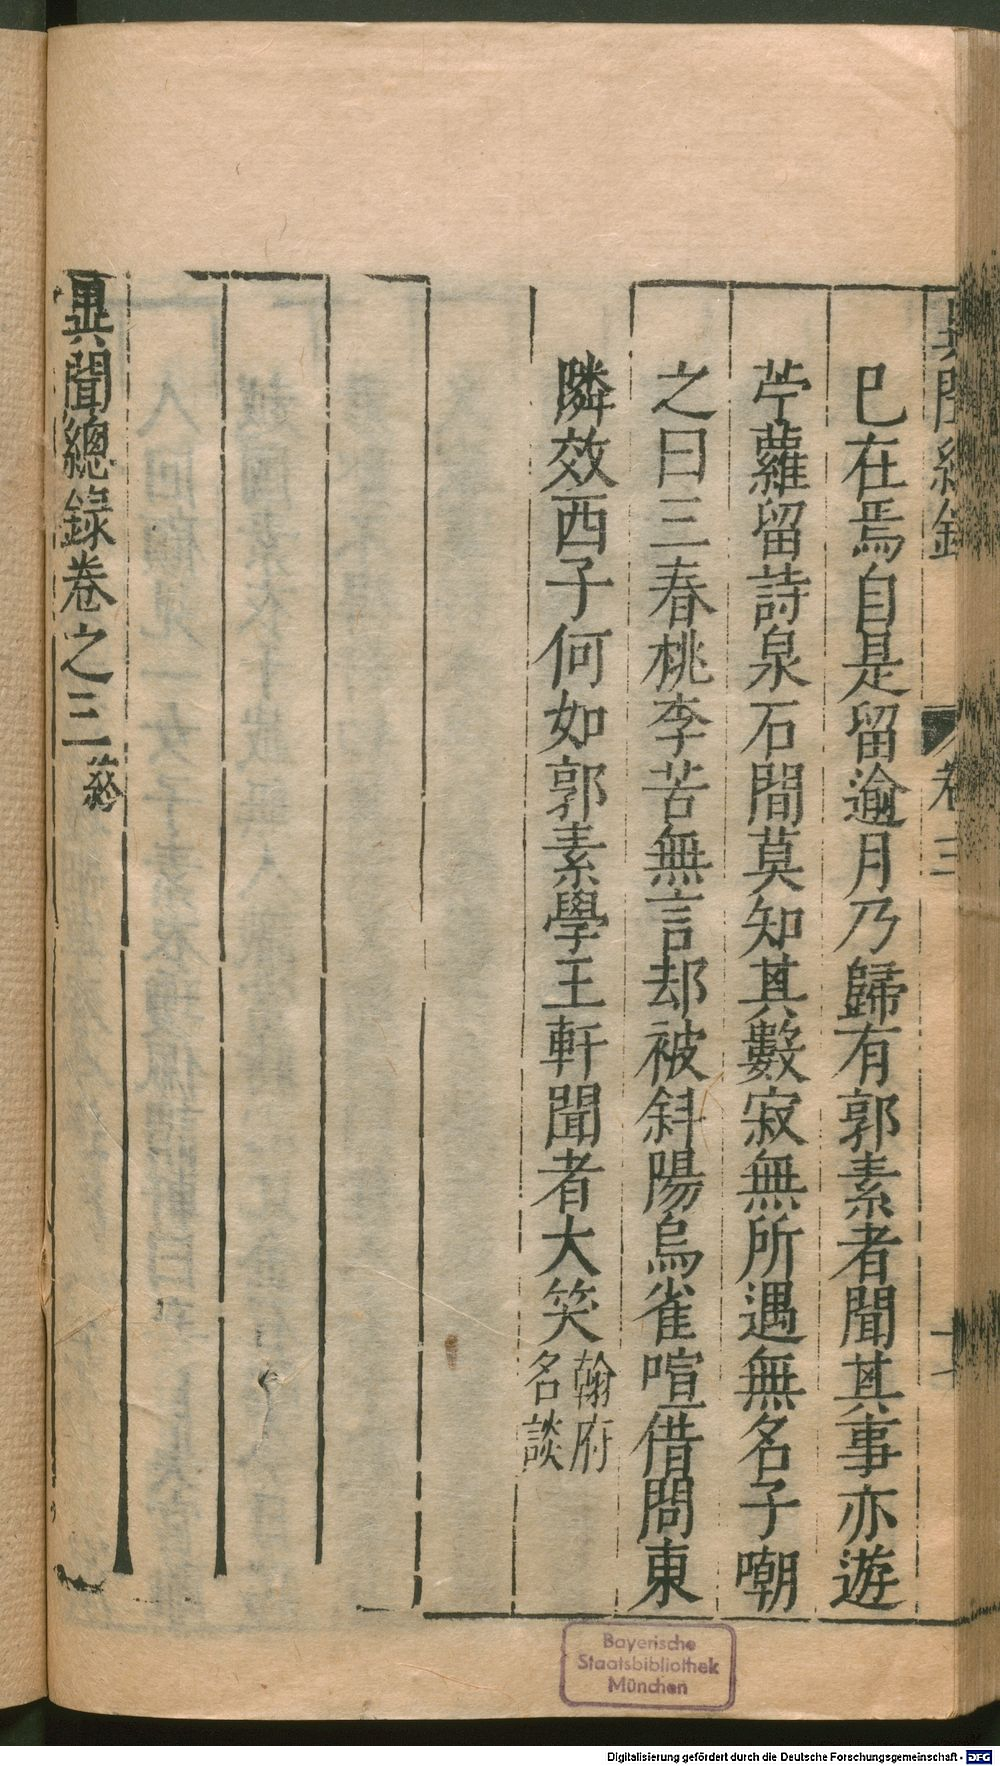 異聞總錄
卷三
已在焉自是留逾月乃歸有郭素者聞其事亦遊
苧蘿留詩泉石間莫知其數寂無所遇無名子嘲
之曰三春桃李苦無言却被斜陽鳥雀喧借問東
隣效西子何如郭素學王軒聞者大笑翰府
名談
異聞總錄卷之三終
Bayerische
Staatsbibliothek
München
Digitalisierung gefördert durch die Deutsche Forschungsgemeinschaft - DFG